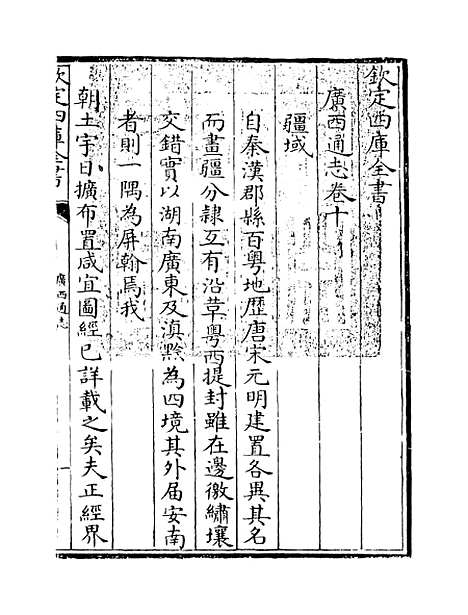 欽定四庫全書
廣西通志卷十
疆域
自秦漢郡縣百粤地歷唐宋元明建置各異其名
而畫疆分隸互有沿革粤西提封雖在邊徼繡壤
交錯實以湖南廣東及滇黔為四境其外届安南
者則一隅為屏翰焉我
朝土宇日擴布置咸宜圖經已詳載之矣夫正經界
欽定四庫全書
廣西通志
一